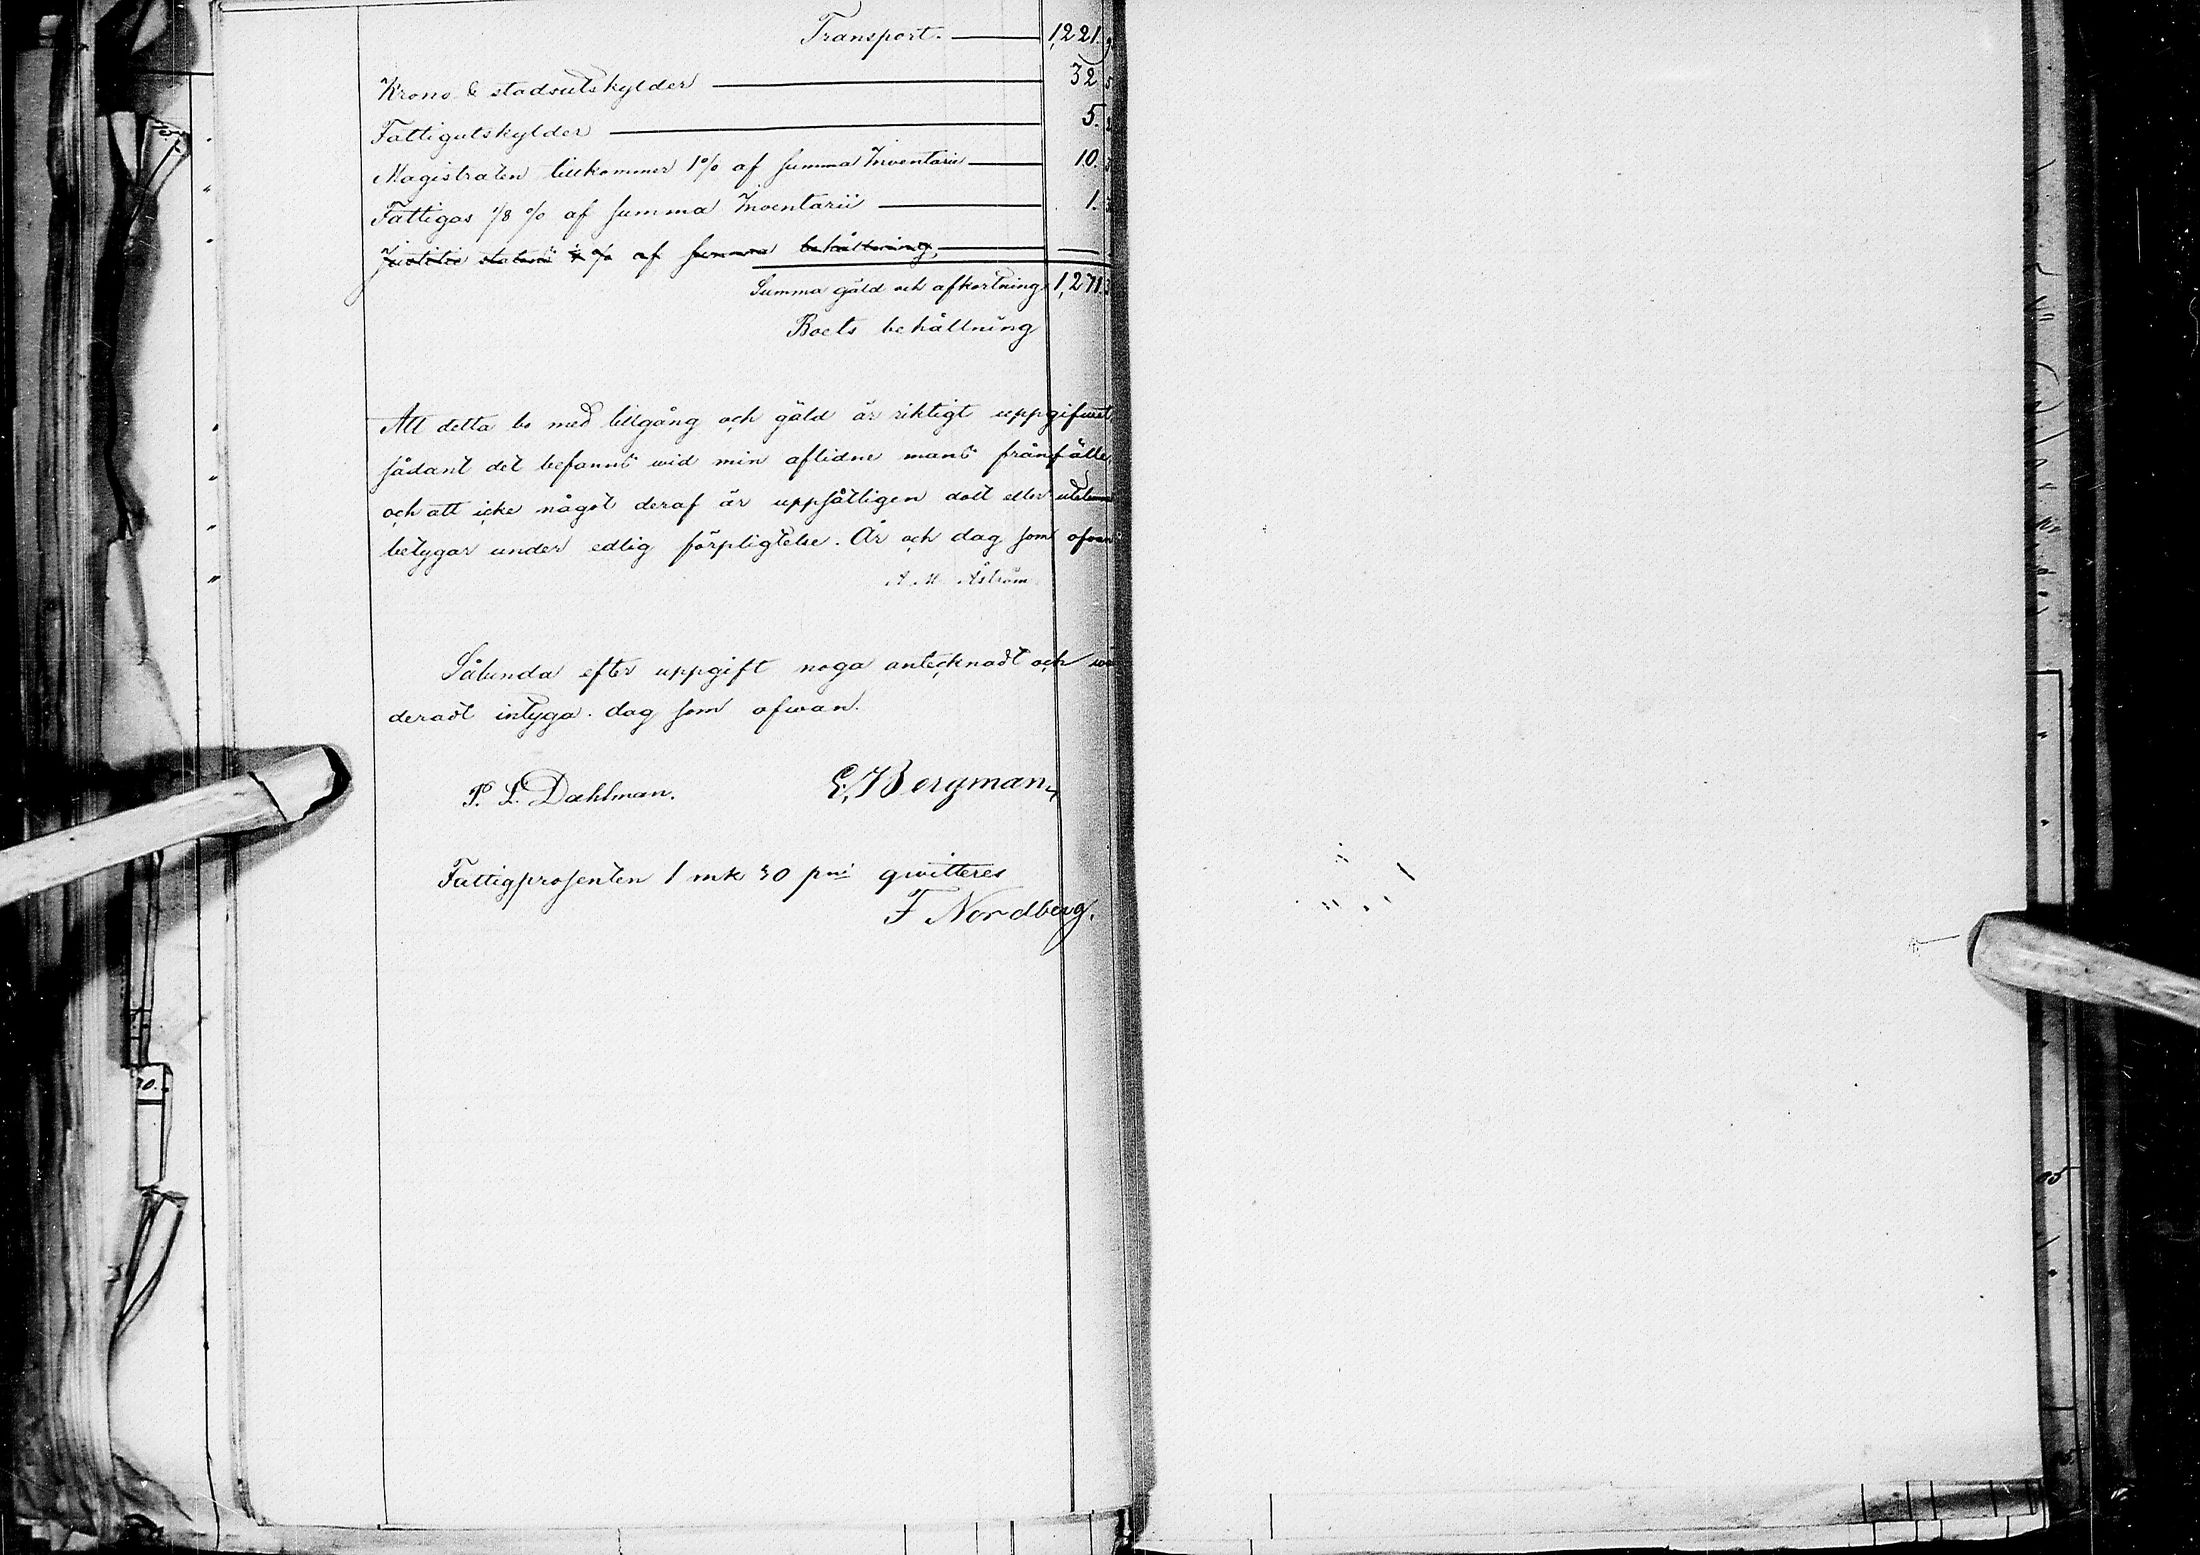 Transport. 1,221.
Krono & stadsutskylder 32
Fattigutskylder 5.
Magistraten tillkommer 1 % af summa Inventarii 10.
Fattigas 1/8 % af summa Inventarii 1.
Justitie statens ¼ % af summa behållning, —
Summa gäld och afkortning 1,271.
Boets behållning
Att detta bo med tillgång och gäld är riktigt uppgifwet,
sådant det befanns wid min aflidne mans frånfälle,
och att icke något deraf är uppsåtligen dolt eller
betygar under edlig förpligtelse. År och dag som ofwan
A M Åström
Sålunda efter uppgift noga antecknadt och wä
deradt intyga. dag som ofwan.
P. L. Dahlman. E. J Bergman,
Fattigprosenten 1 mk 30 pni qwitteres
F Nordberg.